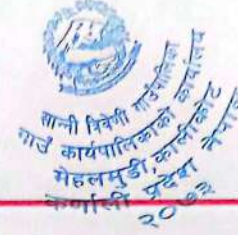 सान्नी त्रिवेणी गाउँपालिका
गाउँ कार्यपालिकाको कार्यालय
मेहलमुडी, कालीकोट
कर्णाली प्रदेश नेपाल
२०७३